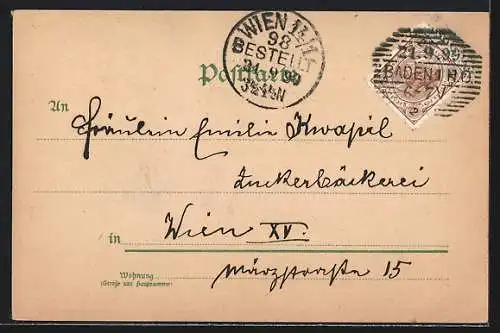 WIEN 14/1
98
BESTELLT
21.9.99
3½-5N
Postkarte
21.9.99
BADEN
An
Fräulein Emilie Kwapil
Zuckerbäckerei
in Wien XV.
Märzstraße 15
Wohnung
(Straße und Hausnummer)